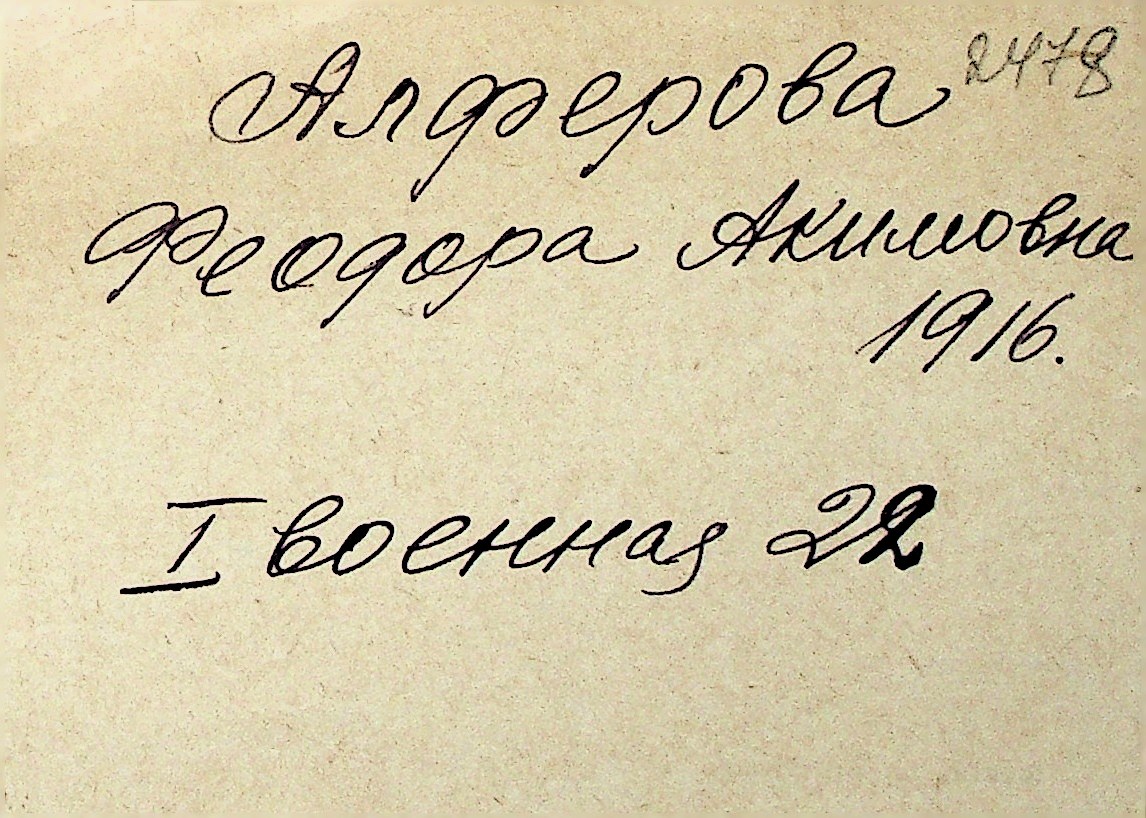 Алферова 2478
Феодора Акимовна
1916.
I военная 22